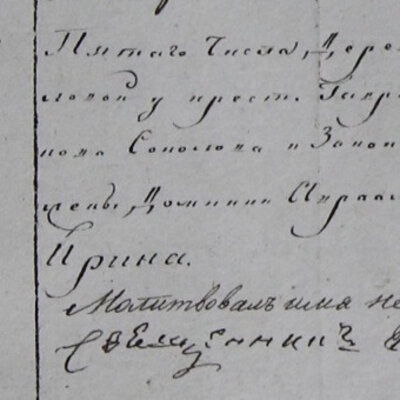 Пятаго Числа, Дере
ловой у крест. Гавр
нова Соколова и Закон
жены Домники Авраа
Ирина.
Молитвовалъ имя
Священникъ